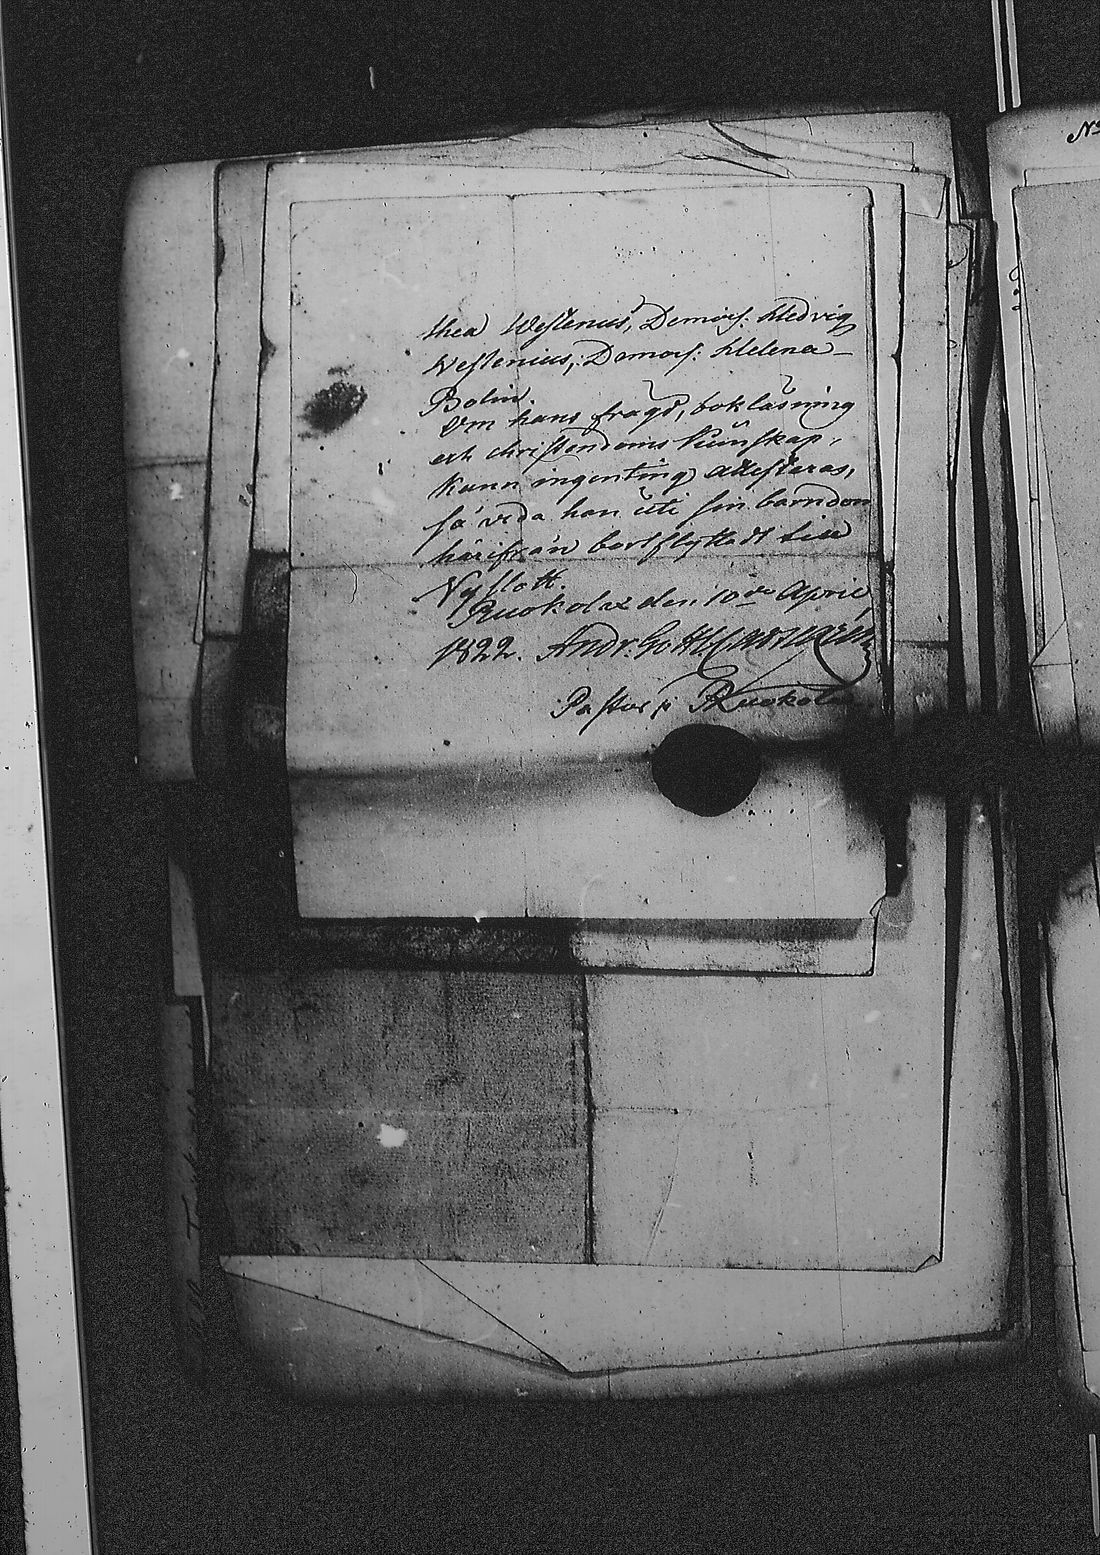 thea Westenius, Demois: Hedvig
Westenius, Demois: Helena
Bolin.
Om hans frägd, bokläsning
och christendoms kunskap,
kann ingenting attesteras,
så vida han uti sin barndom
härifrån bortflyttadt till
Nyslott
Ruokolax den 10de April
1822. Andr. Gottl.
Pastor i Ruokolax
No